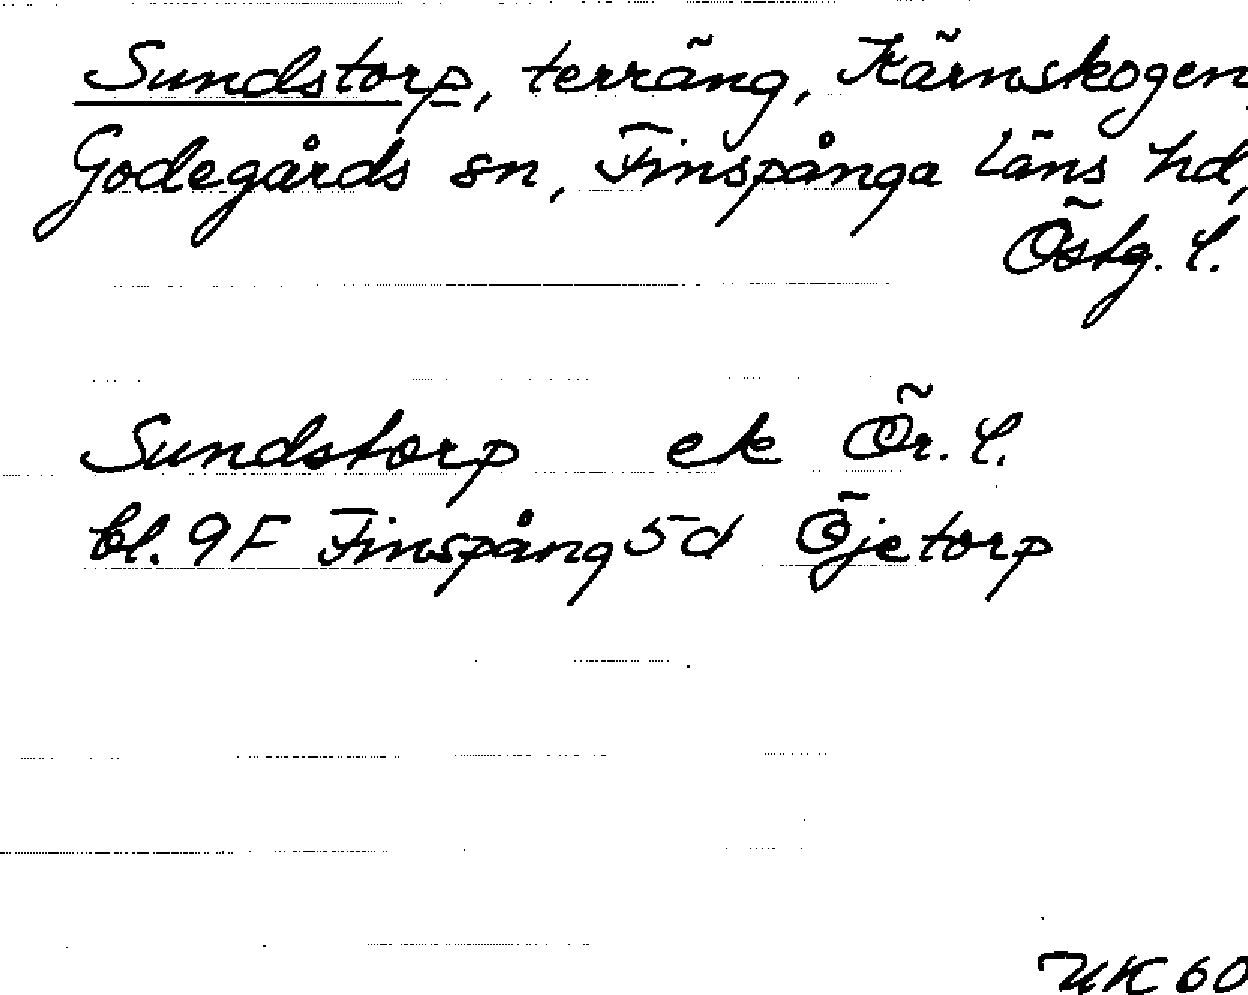 Sundstorp, terräng, Kärnskogen
Godegårds sn, Finspånga läns hd,
Östg. l.
Sundstorp ek Ör. l.
bl. 9F Finspång 5d Öjetorp
UK 60